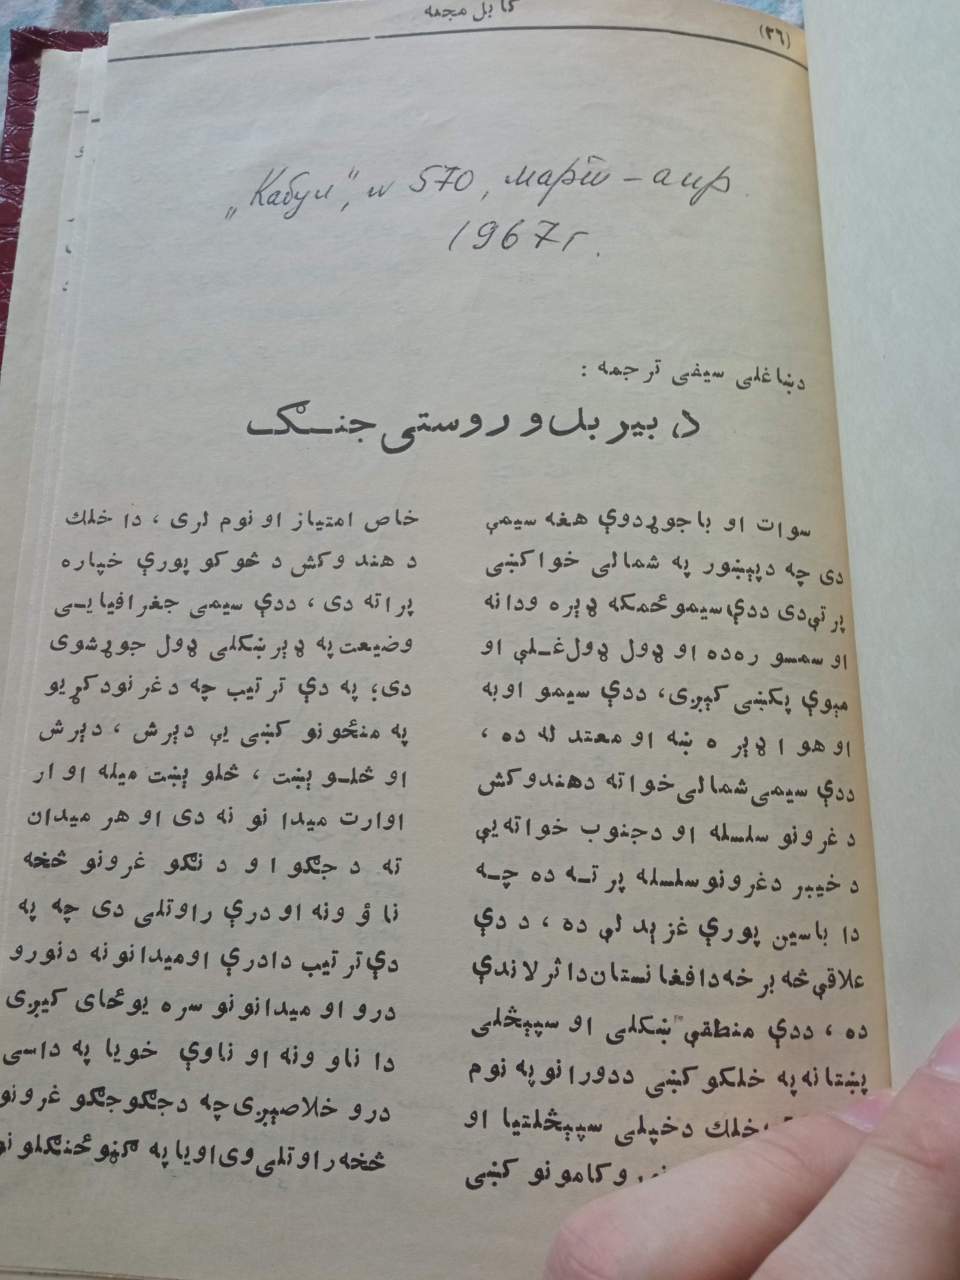 (٣٦)
کابل مجله
„Кабул", N 570, март – апр.
1967 г.
دښاغلی سیفی ترجمه :
د بیربل وروستی جنـگ
سوات او باجوړدوې هغه سیمې
دی چه دپېښور په شمالی خواکښی
پرتې‌دی ددې سیموځمکه ډېره ودانه
او سمسوره‌ده او ډول ډول‌غـلې او
مېوې پکښی کېږی، ددې سیمو اوبه
او هوا ډېره ښه او معتدله ده ،
ددې سیمی شمالی‌خواته دهندوکش
د غرونو سلسله او دجنوب خواته‌یې
د خیبر دغرونوسلسله پرتـه ده چـه
دا باسین پورې غزېدلې ده ، د دې
علاقې‌څه برخه‌دافغانستان‌داثرلاندې
ده ، ددې منطقې ښکلی او سپېڅلی
پښتانه‌په خلکو کښی ددورانوپه نوم
خلك دخپلی سپېڅلتیا او
وکامونو کښی
خاص امتیاز او نوم لری ، دا خلك
د هندوکش د څوکو پورې خپاره
پراته دی ، ددې سیمی جغرافیایـی
وضیعت په ډېر ښکلی ډول جوړشوی
دی؛ په دې ترتیب چه دغرنودکړیو
په منځونو کښی یې دېرش ، دېرش
او څلـوېښت ، څلوېښت میله اوار
اوارت میدانونه دی او هر میدان
ته د جګو او د نګو غرونو څخه
ناؤونه اودرې راوتلی دی چه په
دې‌ترتیب دادرې اومیدانونه دنورو
درو او میدانونو سره یوځای کیږی
دا ناوونه او ناوې خویا په داسی
درو خلاصېږی‌چه دجګوجګو غرونو
څخه‌راوتلی‌وی‌اویا په ګڼوځنګلونو